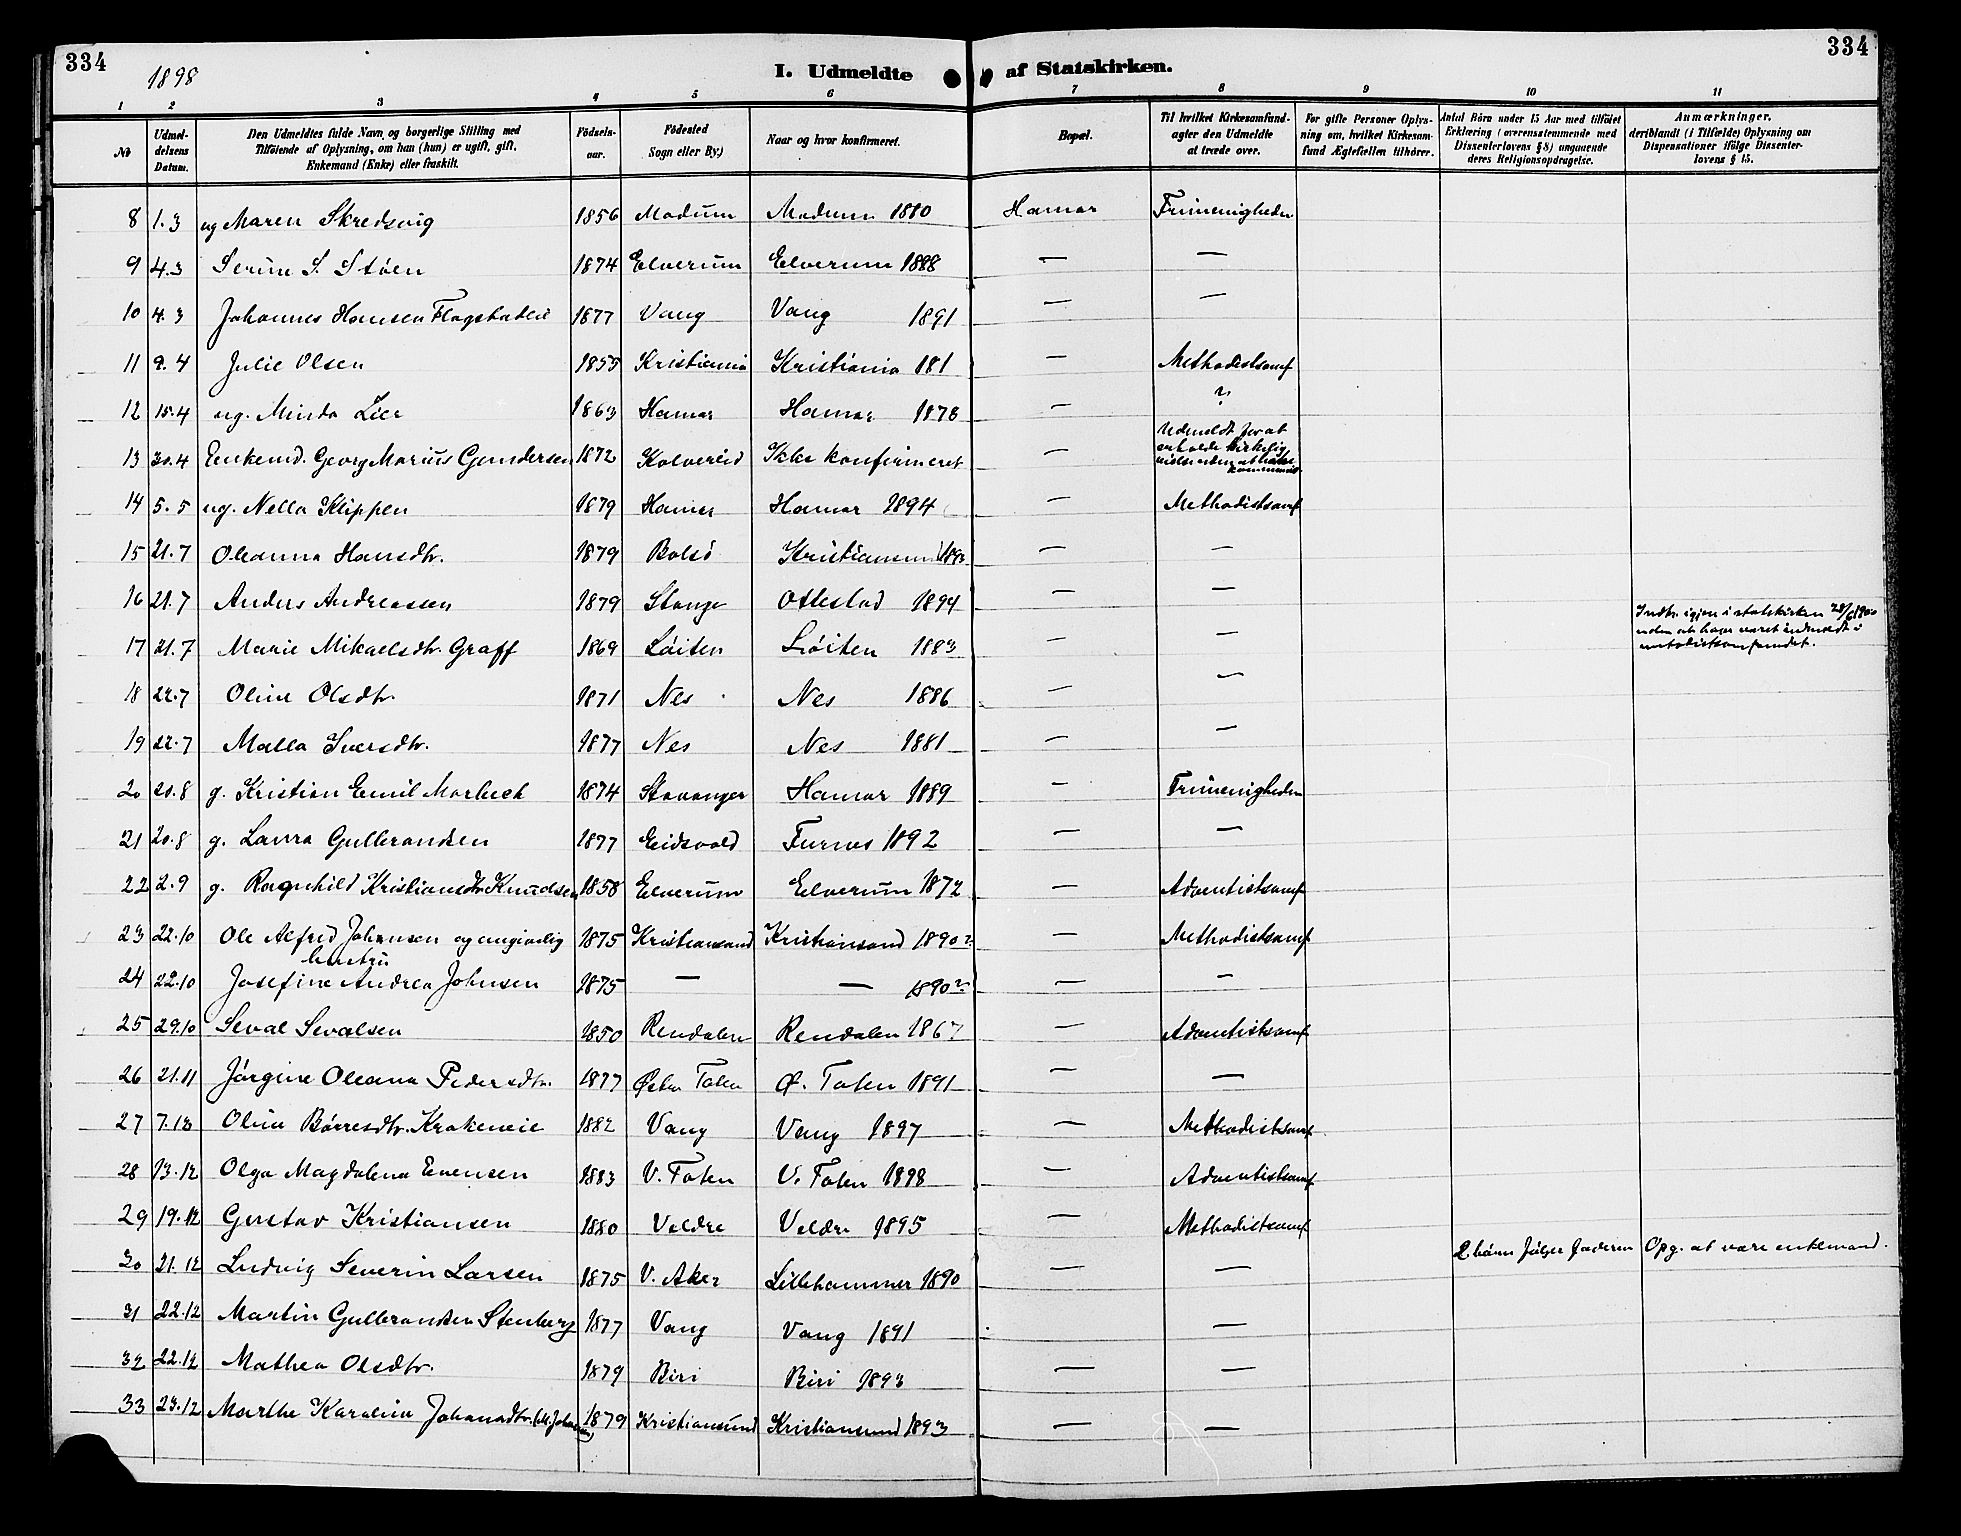 334
1898
I. Udmeldte af Statskirken.
334
1 2 3 4 5 6 7 8 9 10 11
No
Udmel-
delsens
Datum.
Den Udmeldtes fulde Navn og borgerlige Stilling med
Tilføiende af Oplysning, om han (hun) er ugift, gift,
Enkemand (Enke) eller fraskilt.
Fødsels-
aar.
Fødested
Sogn eller By.)
Naar og hvor konfirmeret.
Bopæl.
Til hvilket Kirkesamfund-
agter den Udmeldte
at træde over.
For gifte Personer Oplys-
ning om, hvilket Kirkesam-
fund Ægtefællen tilhører.
Antal Børn under 15 Aar med tilføiet
Erklæring (overensstemmende med
Dissenterlovens § 8) angaaende
deres Religionsopdragelse.
Anmærkninger,
deriblandt (i Tilfælde) Oplysning om
Dispensationer ifølge Dissenter-
lovens § 15.
8 1.3 ug Maren Skredsvig 1856 Modum Modum 1880 Hamar Frimenigheden
9 4.3 Serine S. Støen 1874 Elverum Elverum 1888 — —
10 4.3 Johannes Hansen Flagstadeie 1877 Vang Vang 1891 — —
11 9.4 Julie Olsen 1855 Kristiania Kristiania 181 — Methodistsamf
12 15.4 ug. Minda Lier 1863 Hamar Hamar 1878 — ?
13 30.4 Enkemd. Georg Marius Gundersen 1872 Kolvereid Ikke konfirmeret — Udmeldt for at
erholde kirkelig
vielse uden at have
kommunic.
14 5.5 ug. Nella Klippen 1879 Hamar Hamar 1894 — Methodistsamf
15 21.7 Oleanna Hansdtr. 1879 Bolsø Kristiansund 1893 — —
16 21.7 Anders Andreassen 1879 Stange Ottestad 1894 — —
17 21.7 Marie Mikaelsdtr. Graff 1869 Løiten Løiten 1883 — — Indtr. igjen i statskirken 28/6 1900
uden at have været indmeldt i
metodistsamfundet.
18 22.7 Oline Olsdtr. 1871 Nes Nes 1886 — —
19 22.7 Malla Iversdtr. 1877 Nes Nes 1881 — —
20 20.8 g. Kristian Emil Morbech 1874 Stavanger Hamar 1889 — Frimenigheden
21 20.8 g. Laura Gulbrandsen 1877 Eidsvold Furnes 1892 — —
22 2.9 g. Ragnhild Kristiansdtr Knudsen 1858 Elverum Elverum 1872 — Adventistsamf
23 22.10 Ole Alfred Johnsen og angivelig
hustru
1875 Kristiansand Kristiansand 1890? — Methodistsamf
24 22.10 Josefine Andrea Johnsen 1875 — — 1890? — —
25 29.10 Seval Sevalsen 1850 Rendalen Rendalen 1867 — Adventistsamf
26 21.11 Jørgine Oleana Pedersdtr. 1877 Østre Toten Ø. Toten 1891 — —
27 7.12 Oline Børresdtr. Krakeneie 1882 Vang Vang 1897 — Methodistsamf
28 13.12 Olga Magdalena Evensen 1883 V. Toten V. Toten 1898 — Adventistsamf
29 19.12 Gustav Kristiansen 1880 Veldre Veldre 1895 — Methodistsamf
30 21.12 Ludvig Severin Larsen 1875 V. Aker Lillehammer 1890 — — 2 børn følger faderen Opg. at være enkemand.
31 22.12 Martin Gulbrandsen Stenberg 1877 Vang Vang 1891 —
32 22.12 Mathea Olsdtr. 1879 Biri Biri 1893 — —
33 23.12 Marthe Karoline Johansdtr. 1879 Kristiansund Kristiansund 1893 — —